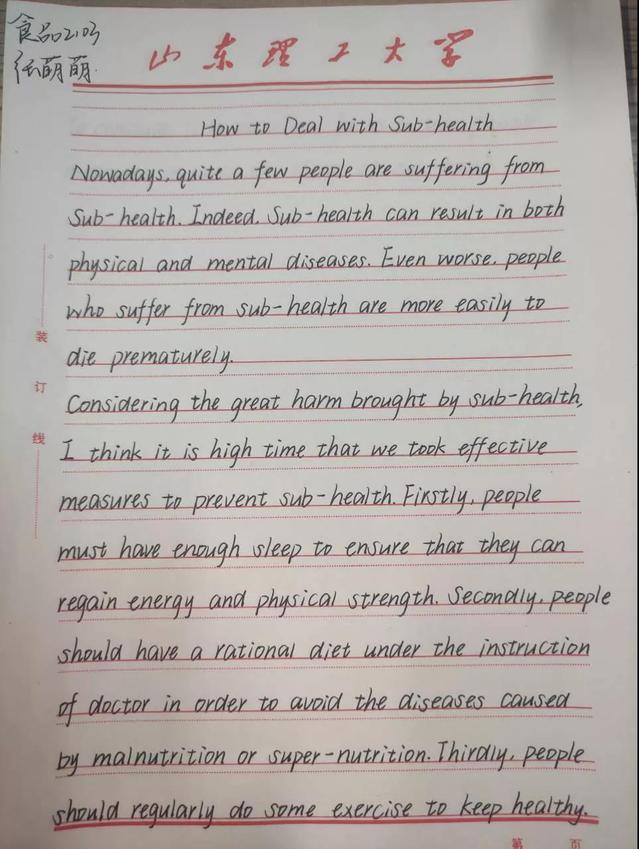 食品2103
张萌萌
山东理工大学
How to Deal with Sub-health
Nowadays, quite a few people are suffering from
Sub-health. Indeed, Sub-health can result in both
physical and mental diseases. Even worse, people
who suffer from sub-health are more easily to
die prematurely.
Considering the great harm brought by sub-health,
I think it is high time that we took effective
measures to prevent sub-health. Firstly, people
must have enough sleep to ensure that they can
regain energy and physical strength. Secondly, people
should have a rational diet under the instruction
of doctor in order to avoid the diseases caused
by malnutrition or super-nutrition. Thirdly, people
should regularly do some exercise to keep healthy.
装
订
线
第 页